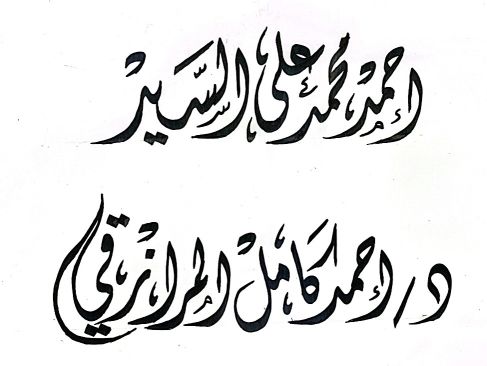 احمد محمد على السيد
د/احمد كامل المرازقي